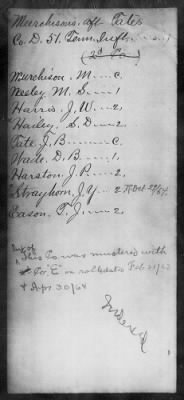 Murchisons, aft Tates
Co. D. 51. Tenn. Inft.
(2d Co)
Murchison, M. C.
Neeley, M. S. 1
Harris, J. W. 2
Hailey, S. D. 2
Tate, J. B. C.
Wade, D. B. 1
Harston, J. P. 2
Strayhorn, J. Y. 2
Eason, T. J. 2
This Co was mustered with
Co. "E" on rolls
& Apr 30/64
Indexed